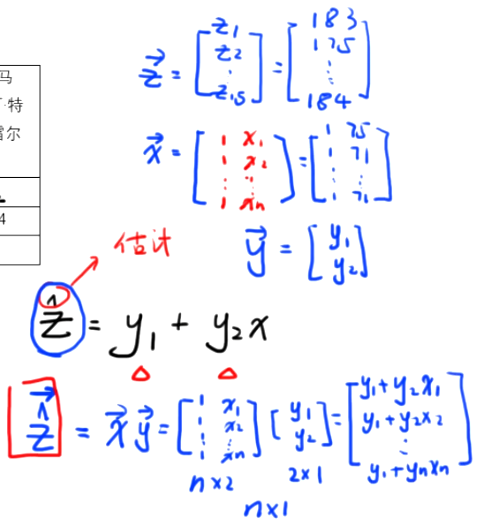 马
特
雷尔
4
$\vec{z} = \begin{bmatrix} z_1 \\ z_2 \\ \vdots \\ z_{15} \end{bmatrix} = \begin{bmatrix} 183 \\ 175 \\ \vdots \\ 184 \end{bmatrix}$
$\vec{x} = \begin{bmatrix} 1 & x_1 \\ 1 & x_2 \\ \vdots & \vdots \\ 1 & x_n \end{bmatrix} = \begin{bmatrix} 1 & 75 \\ 1 & 71 \\ \vdots & \vdots \\ 1 & 71 \end{bmatrix}$
估计
$\vec{y} = \begin{bmatrix} y_1 \\ y_2 \end{bmatrix}$
$\hat{z} = y_1 + y_2 x$
$\vec{\hat{z}} = \vec{x} \vec{y} = \begin{bmatrix} 1 & x_1 \\ 1 & x_2 \\ \vdots & \vdots \\ 1 & x_n \end{bmatrix} \begin{bmatrix} y_1 \\ y_2 \end{bmatrix} = \begin{bmatrix} y_1 + y_2 x_1 \\ y_1 + y_2 x_2 \\ \vdots \\ y_1 + y_n x_n \end{bmatrix}$
n×2 2×1
n×1